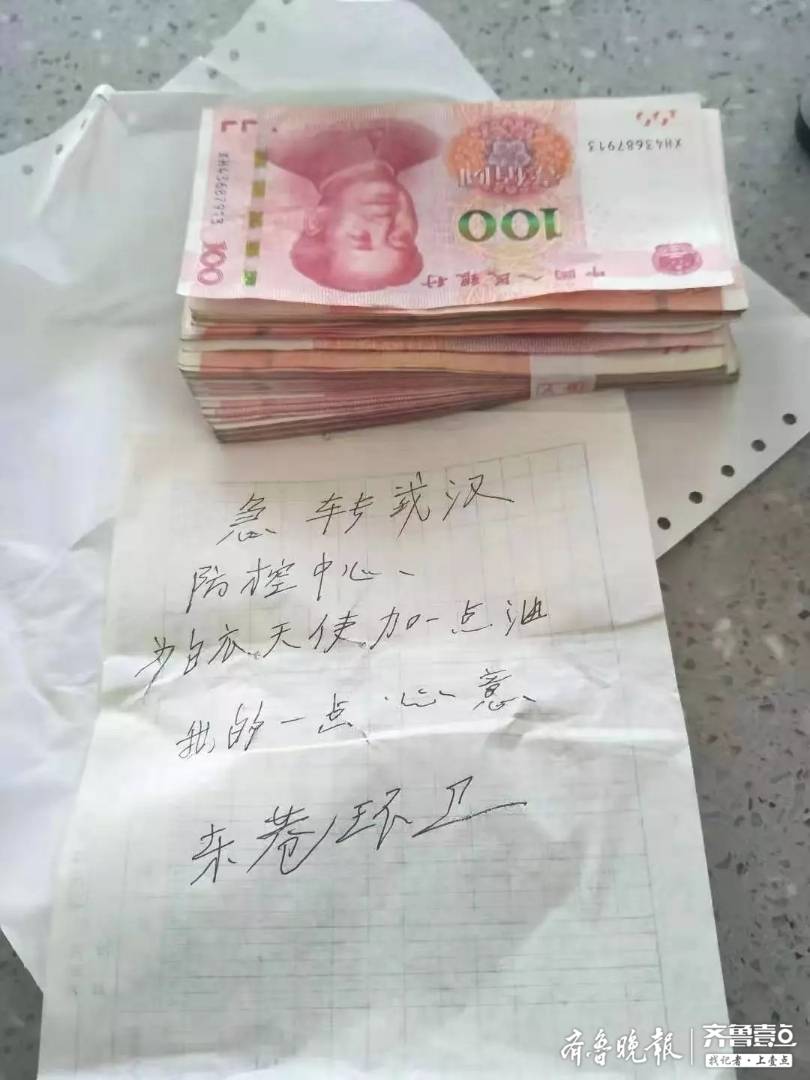 XH43687913
XH43687913
100
100
中国人民银行
急转武汉
防控中心、
为白衣天使加一点油
我的一点心意
东巷环卫
齐鲁晚报 齐鲁壹点
找记者·上壹点